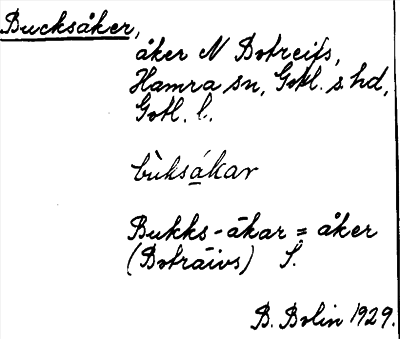 Bucksåker,
åker N Botreifs,
Hamra sn, Gotl. s. hd,
Gotl. l.
bùksákar
Bukks-åkar = åker
(Botraivs) S.
B. Bolin 1929.